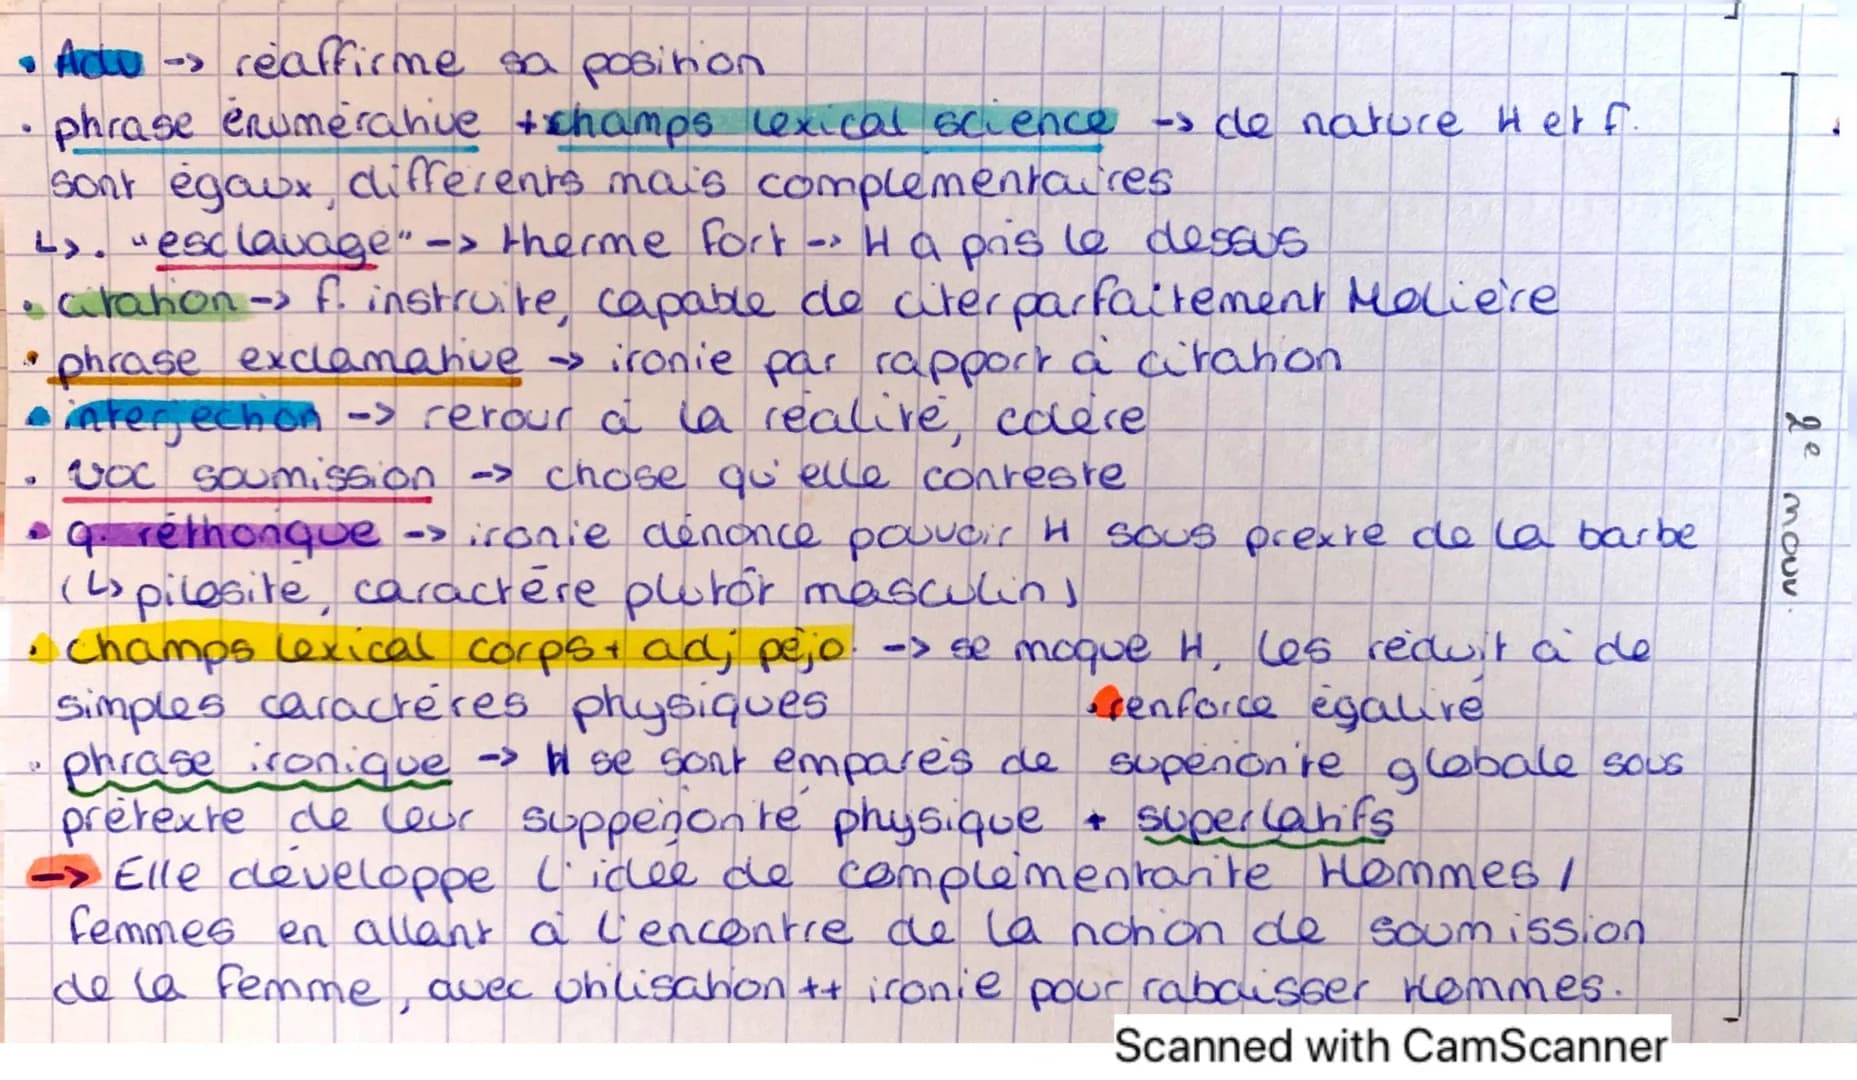 • Adv -> réaffirme sa position
• phrase énumérative + champs lexical science -> de nature H et f.
sont égaux, différents mais complémentaires
↳. "esclavage" -> therme fort -> H a pris le dessus
• citation -> f. instruite, capable de citer parfaitement Molière
• phrase exclamative -> ironie par rapport à citation
• interjection -> retour à la réalité, colère
• voc soumission -> chose qu'elle conteste
• q. réthorique -> ironie dénonce pouvoir H sous prexte de la barbe
(↳ pilosité, caractère plutôt masculin)
• champs lexical corps + adj péjo. -> se moque H, les réduit à de
simples caractères physiques
• renforce égalité
• phrase ironique -> H se sont emparés de supériorité globale sous
prétexte de leur suppériorité physique + superlatifs
-> Elle développe l'idée de complémentarité Hommes /
femmes en allant à l'encontre de la notion de soumission
de la femme, avec utilisation ++ ironie pour rabaisser Hommes.
2e mouv.
Scanned with CamScanner